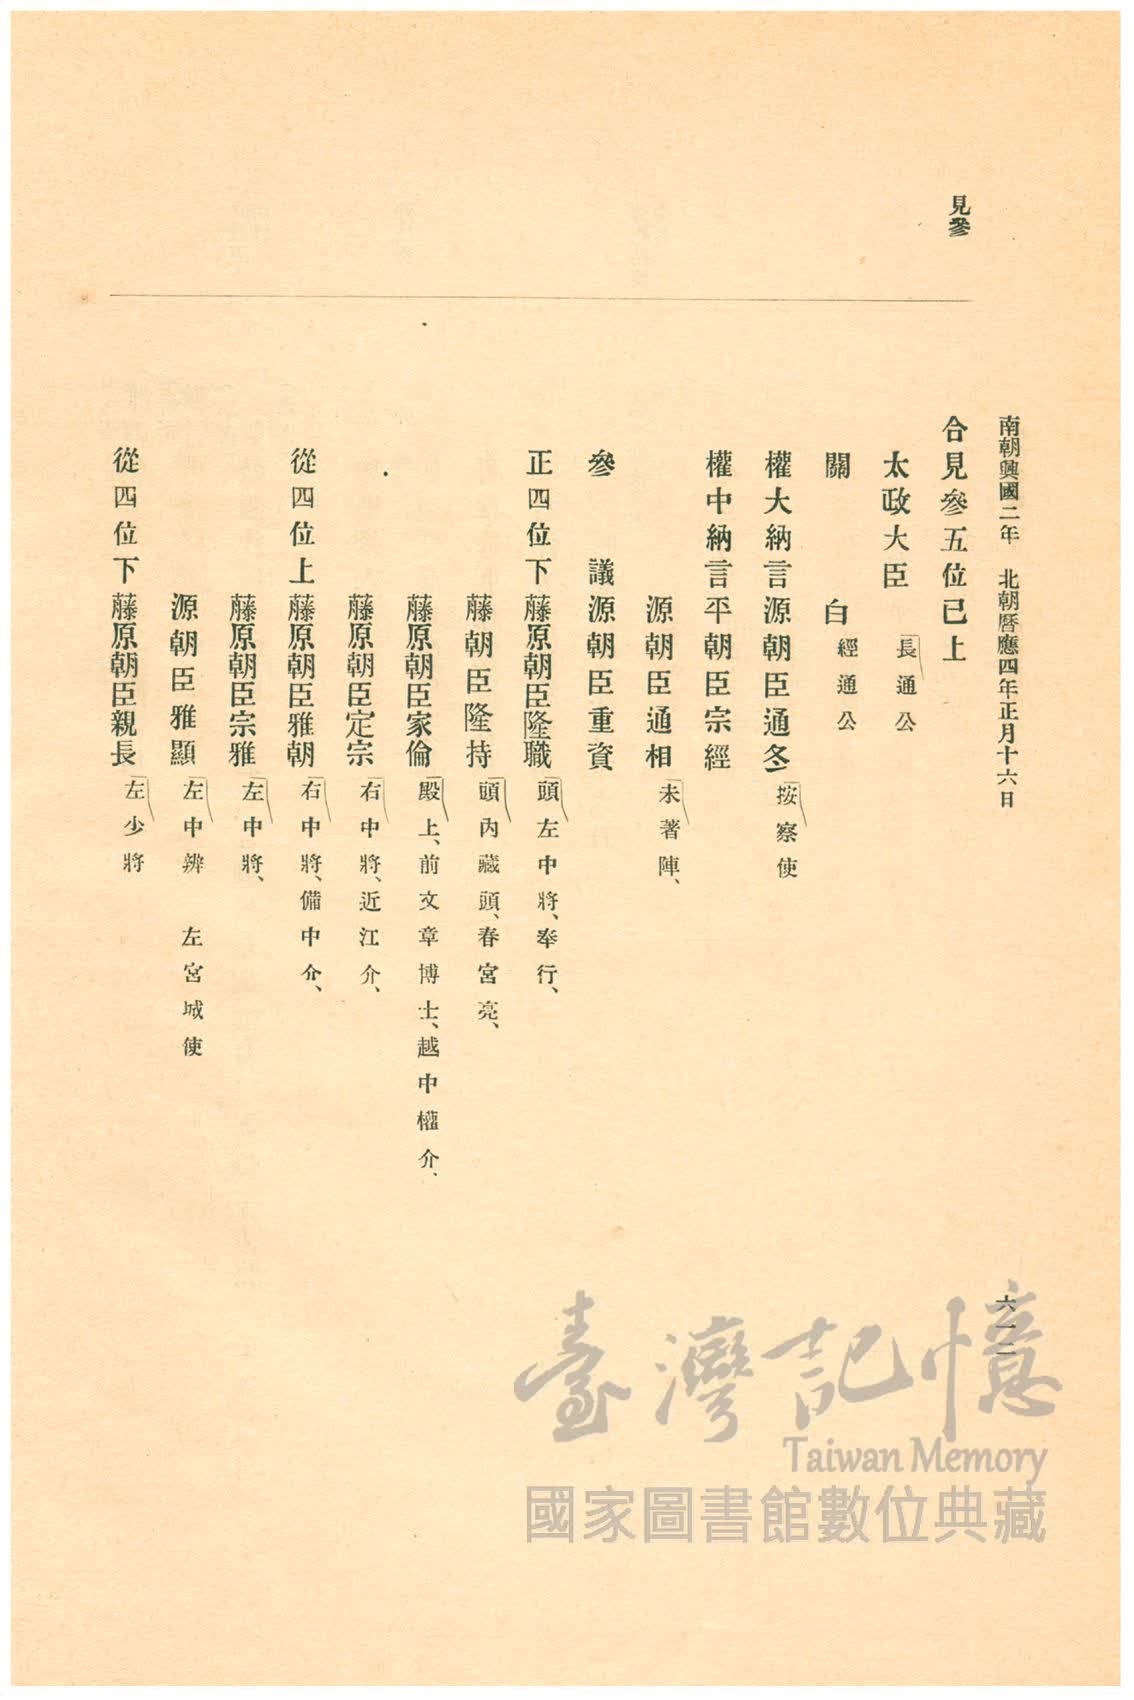 見參
南朝興國二年　北朝曆應四年正月十六日
合見參五位已上
太政大臣 長通公
關　白 經通公
權大納言源朝臣通冬 按察使
權中納言平朝臣宗經
源朝臣通相 未著陣、
參　議源朝臣重資
正四位下藤原朝臣隆職 頭左中將、奉行、
藤朝臣隆持 頭內藏頭、春宮亮、
藤原朝臣家倫 殿上、前文章博士、越中權介、
藤原朝臣定宗 右中將、近江介、
從四位上藤原朝臣雅朝 右中將、備中介、
藤原朝臣宗雅 左中將、
源朝臣雅顯 左中辨　左宮城使
從四位下藤原朝臣親長 左少將
六一二
臺灣記憶
Taiwan Memory
國家圖書館數位典藏